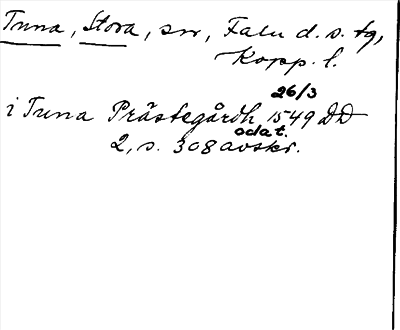 Tuna, Stora, sn, Falu d. s. tg,
Kopp. l.
26/3
i Tuna Prästegårdh 1549 DD
odat.
2, s. 308 avskr.